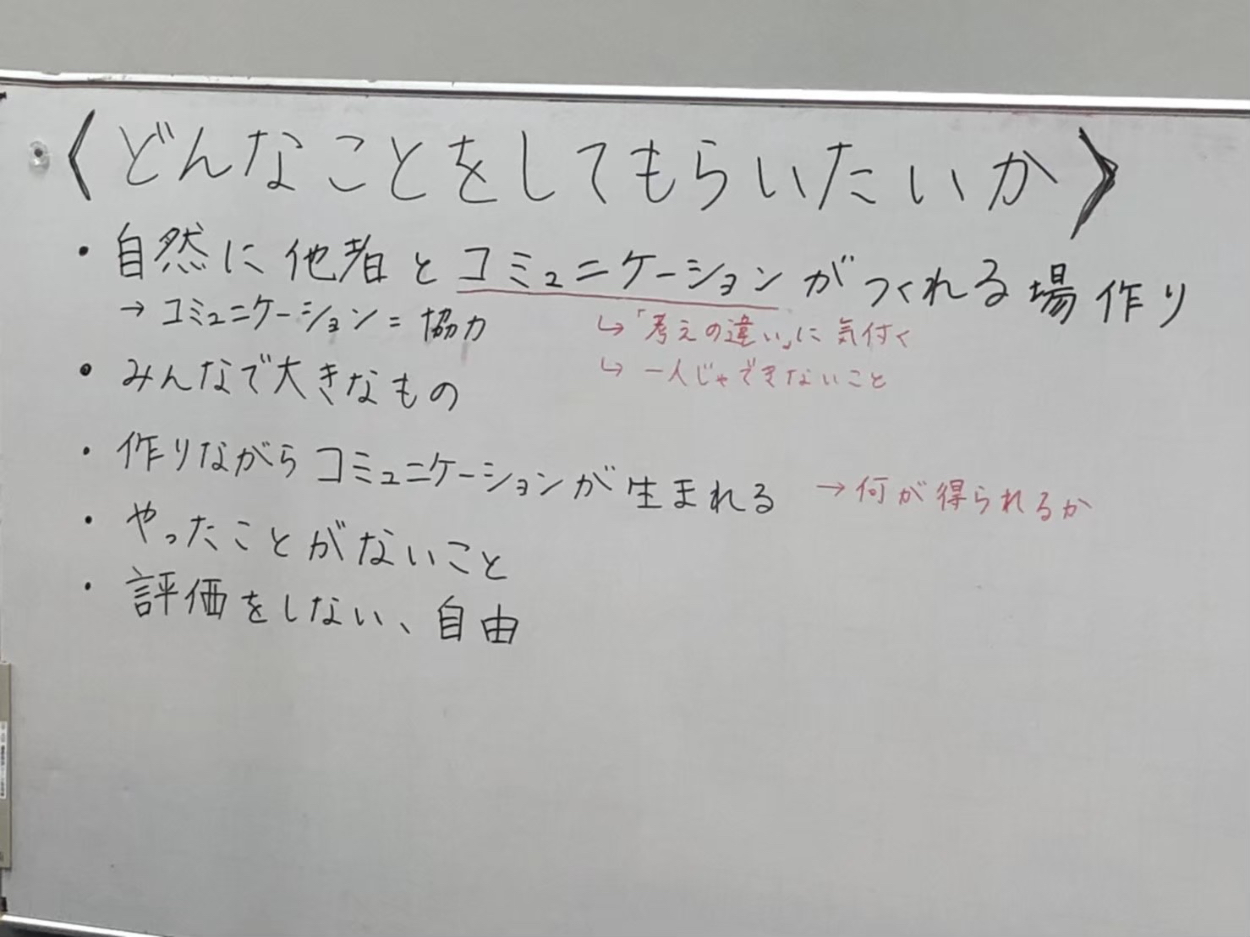 〈どんなことをしてもらいたいか〉
・自然に他者とコミュニケーションがつくれる場作り
→コミュニケーション=協力
↳「考えの違い」に気付く
↳一人じゃできないこと
・みんなで大きなもの
・作りながらコミュニケーションが生まれる →何が得られるか
・やったことがないこと
・評価をしない、自由